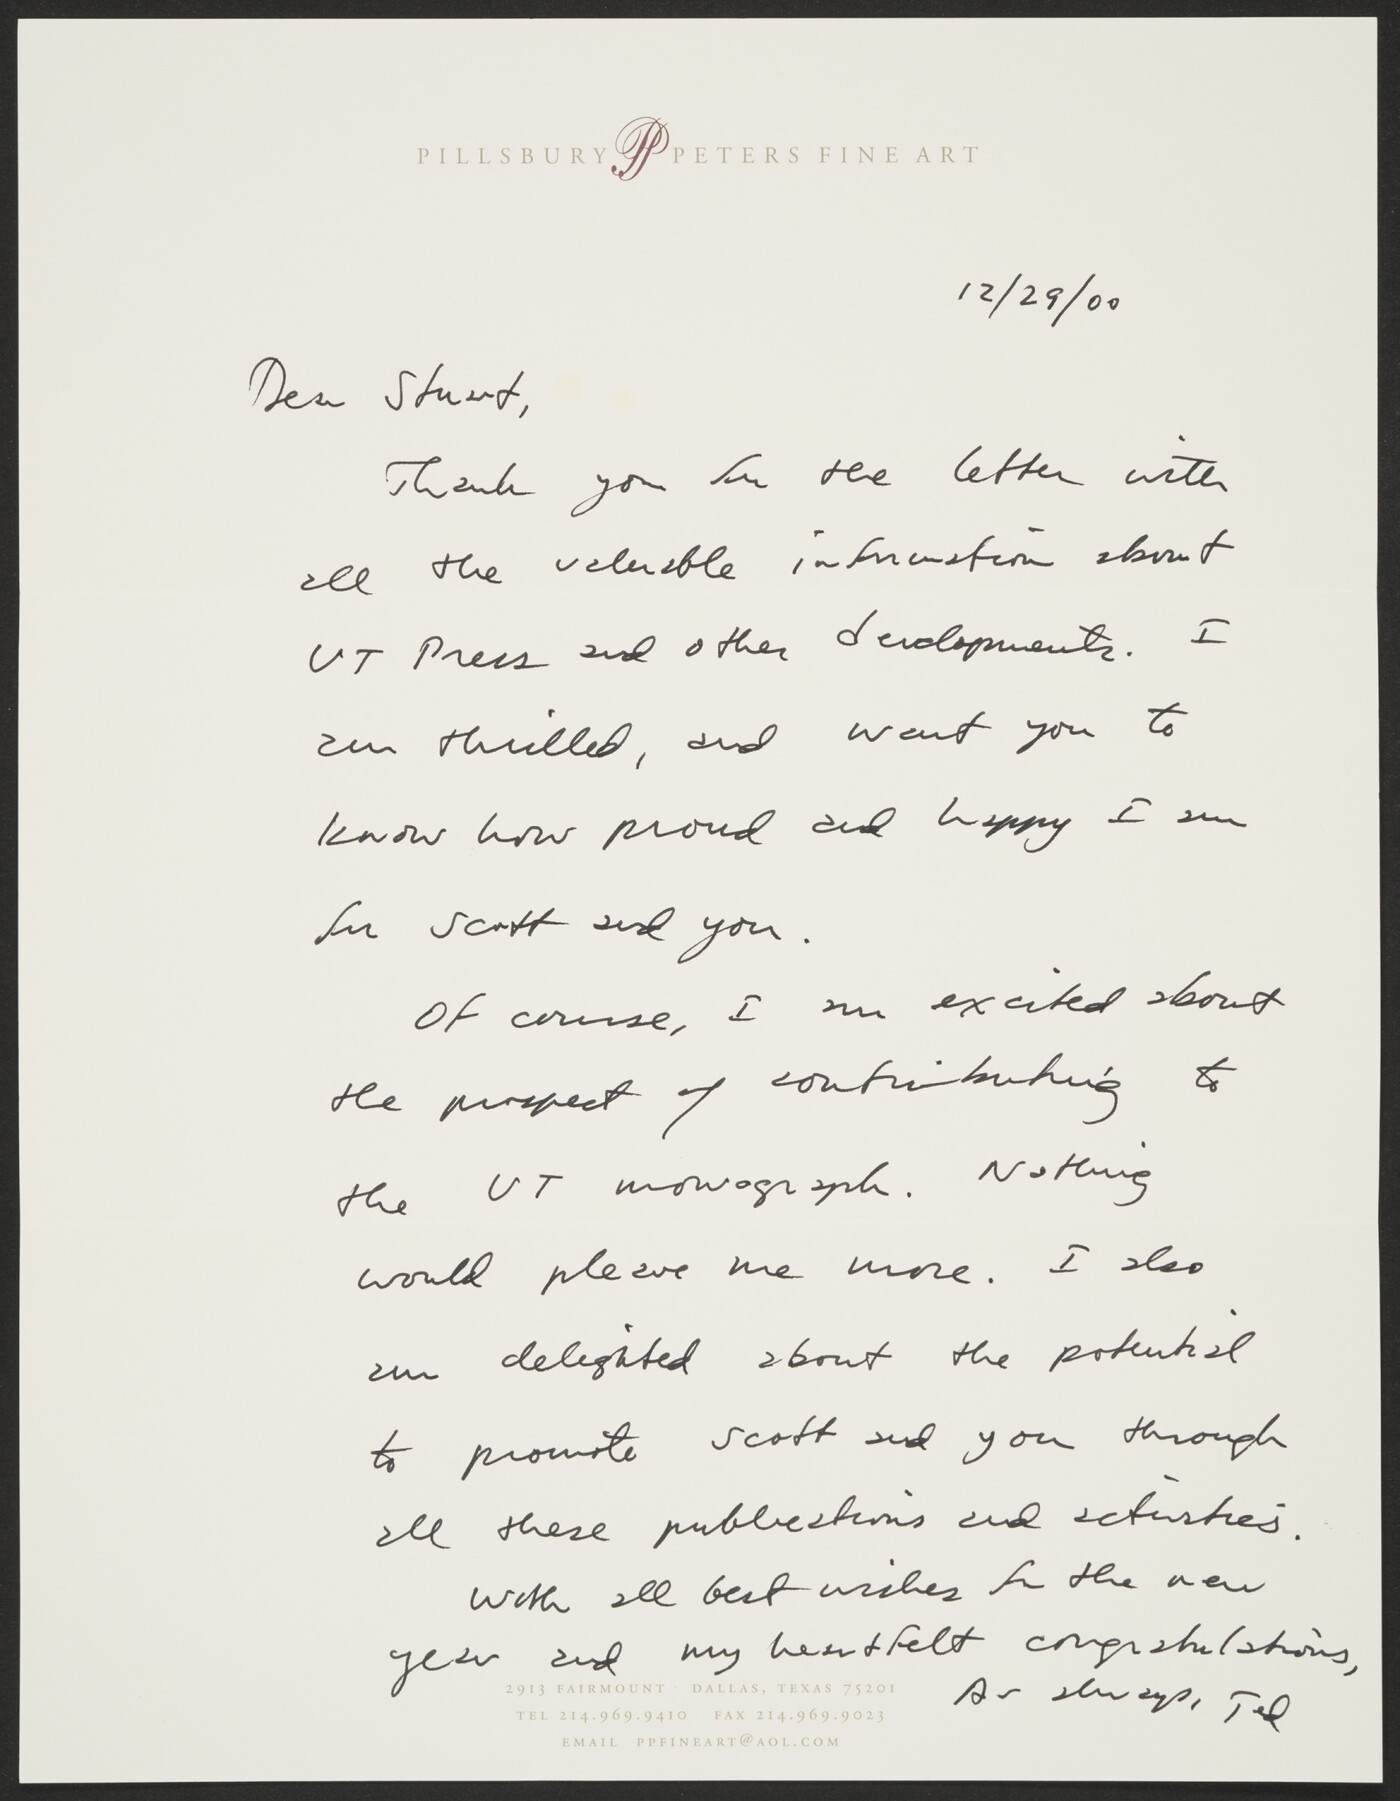 PILLSBURY PP PETERS FINE ART
12/29/00
Dear Stuart,
Thank you for the letter with
all the valuable information about
UT Press and other developments. I
am thrilled, and want you to
know how proud and happy I am
for Scott and you.
Of course, I am excited about
the prospect of contributing to
the UT monograph. Nothing
would please me more. I also
am delighted about the potential
to promote Scott and you through
all these publications and activities.
With all best wishes for the new
year and my heartfelt congratulations,
As always, Ted
2913 FAIRMOUNT DALLAS, TEXAS 75201
TEL 214.969.9410 FAX 214.969.9023
EMAIL PPFINEART@AOL.COM